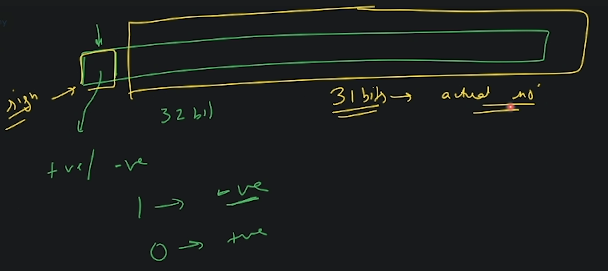 sign
32 bit
31 bits → actual no.
+ve/ -ve
1 → -ve
0 → +ve